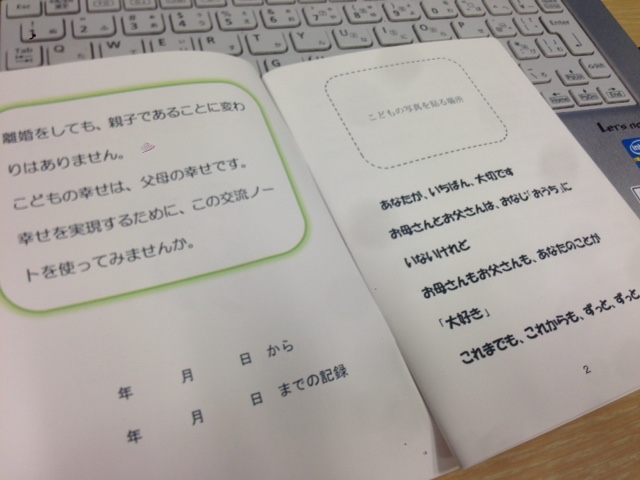 離婚をしても、親子であることに変わ
りはありません。
こどもの幸せは、父母の幸せです。
幸せを実現するために、この交流ノー
トを使ってみませんか。
年　月　日 から
年　月　日 までの記録
こどもの写真を貼る場所
あなたが、いちばん、大切です
お母さんとお父さんは、おなじ「おうち」に
いないけれど
お母さんもお父さんも、あなたのことが
「大好き」
これまでも、これからも、ずっと、ずっと、
2
Esc
Tab
Q W E R T Y U I O P
Enter
Home
PgDn
End
Let's no